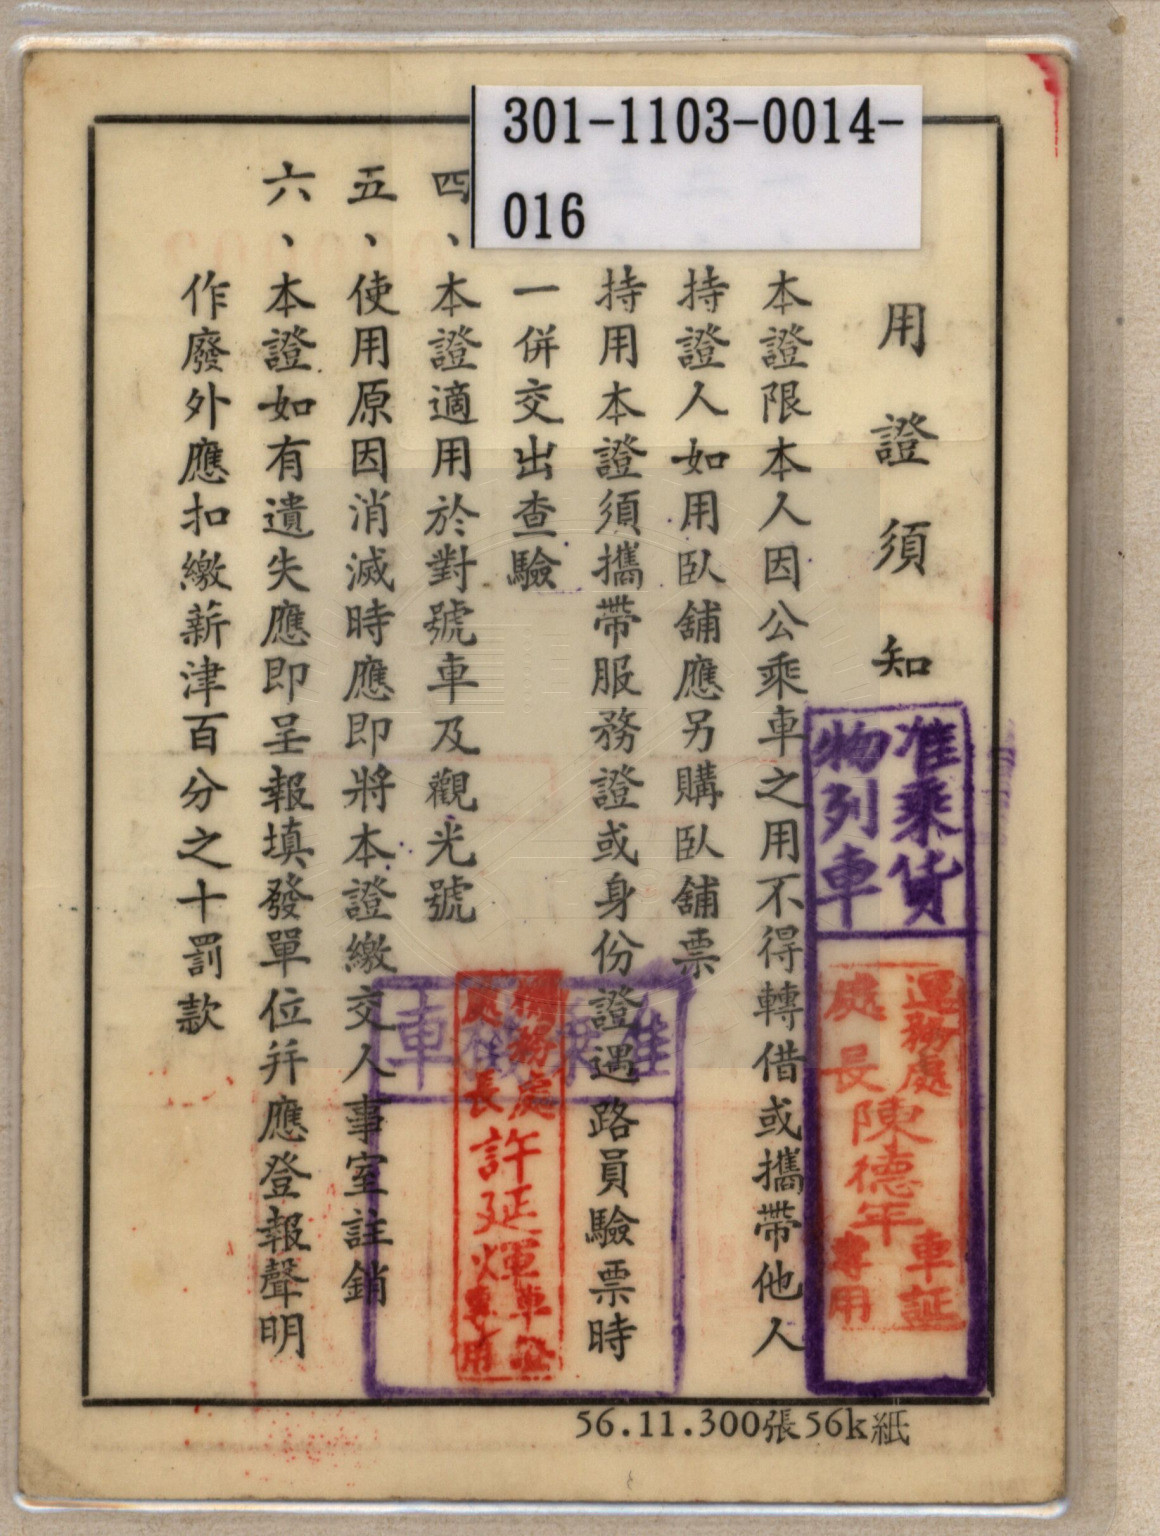 301-1103-0014-
016
用證須知
本證限本人因公乘車之用不得轉借或攜帶他人
持證人如用臥舖應另購臥舖票
持用本證須攜帶服務證或身份證遇路員驗票時
一併交出查驗
四、本證適用於對號車及觀光號
五、使用原因消滅時應即將本證繳交人事室註銷
六、本證如有遺失應即呈報填發單位并應登報聲明
作廢外應扣繳薪津百分之十罰款
准乘貨
物列車
運務處
處長
陳德年
車証
專用
處長
許延輝
專用
56.11.300張56k紙